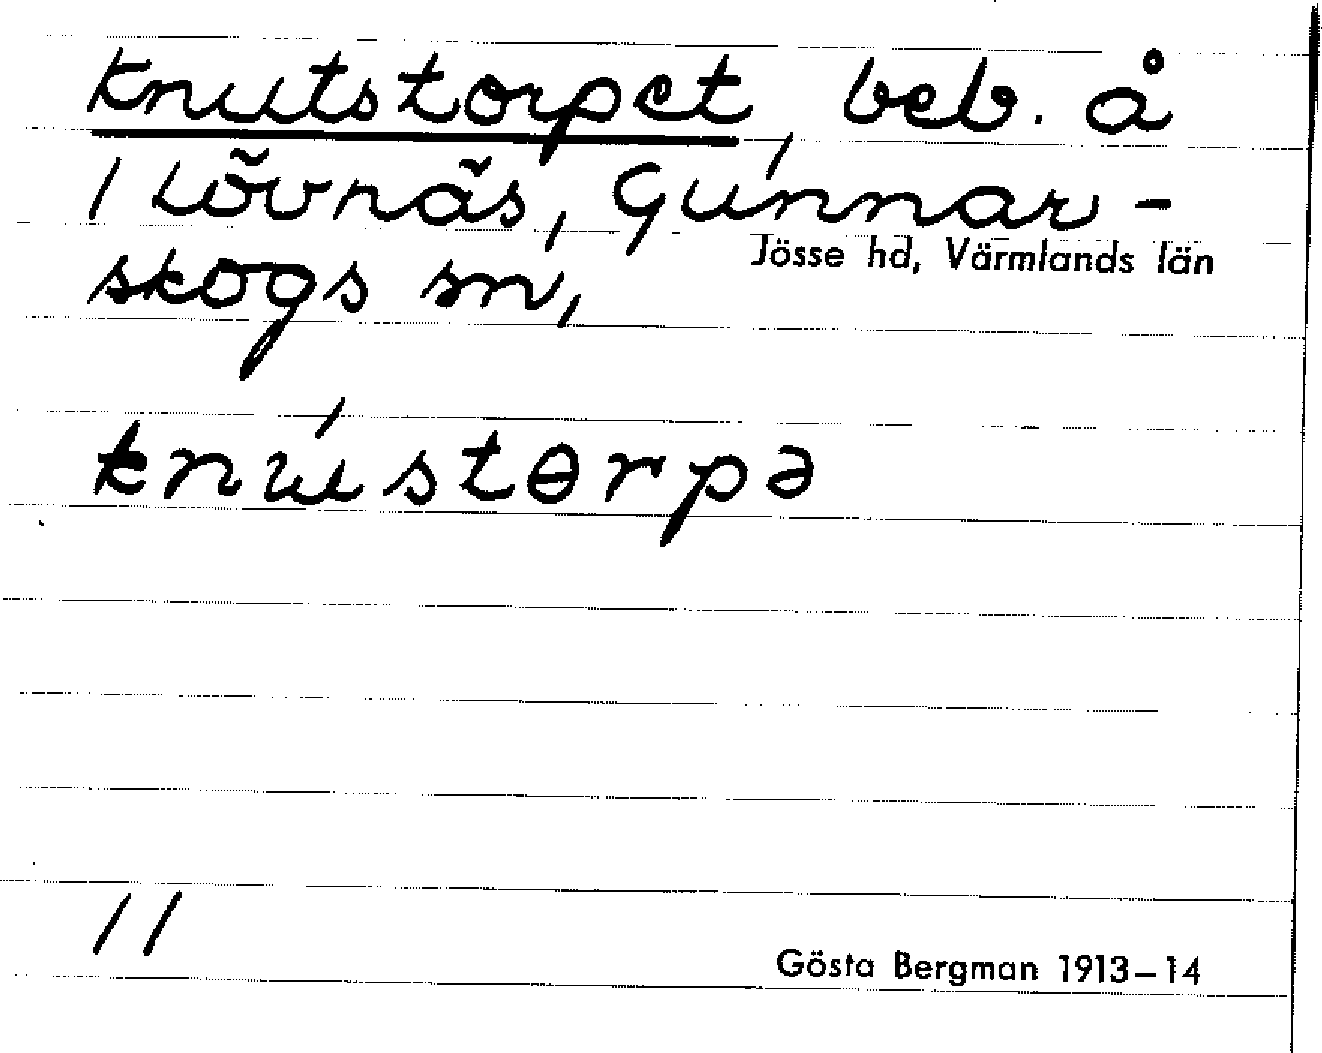 Knutstorpet, beb. å
1 Lövnäs, Gunnar-
skogs sn,
Jösse hd, Värmlands län
knústɵrpə
11
Gösta Bergman 1913–14